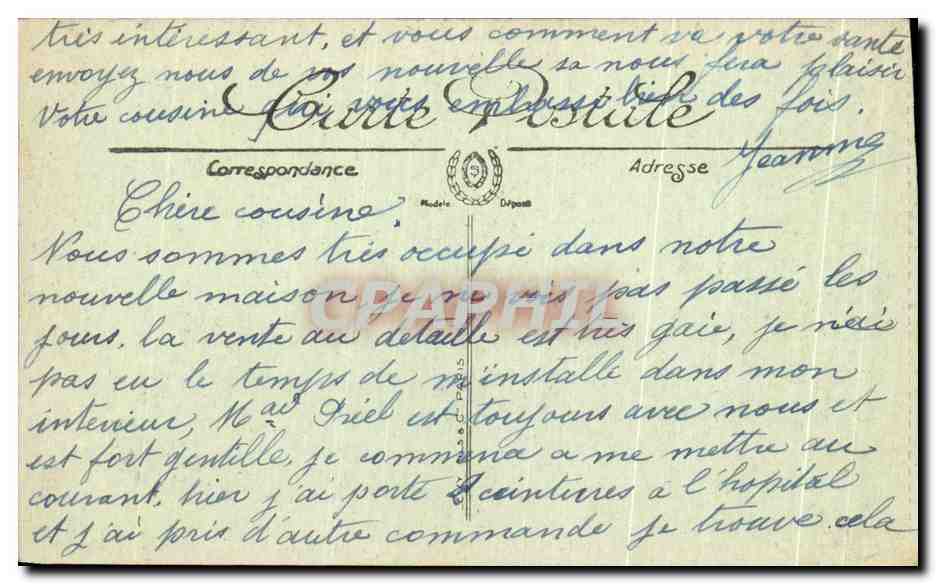 très intéressant, et vous comment va votre santé
envoyez nous de vos nouvelle sa nous fera plaisir
Votre cousine qui vous embrasse bien des fois.
Carte Postale
Jeanne
Correspondance
Adresse
Modèle Déposé
Chère cousine,
Nous sommes très occupé dans notre
nouvelle maison je ne vois pas passé les
jours, la vente au détaille est très gaie, je n'ai
pas eu le temps de m'installe dans mon
interieur, est toujours avec nous et
est fort gentille, je commence a me mettre au
courant, hier j'ai porte 2 ceintures à l'hopital
et j'ai pris d'autre commande je trouve cela
CPARHIL
PARIS